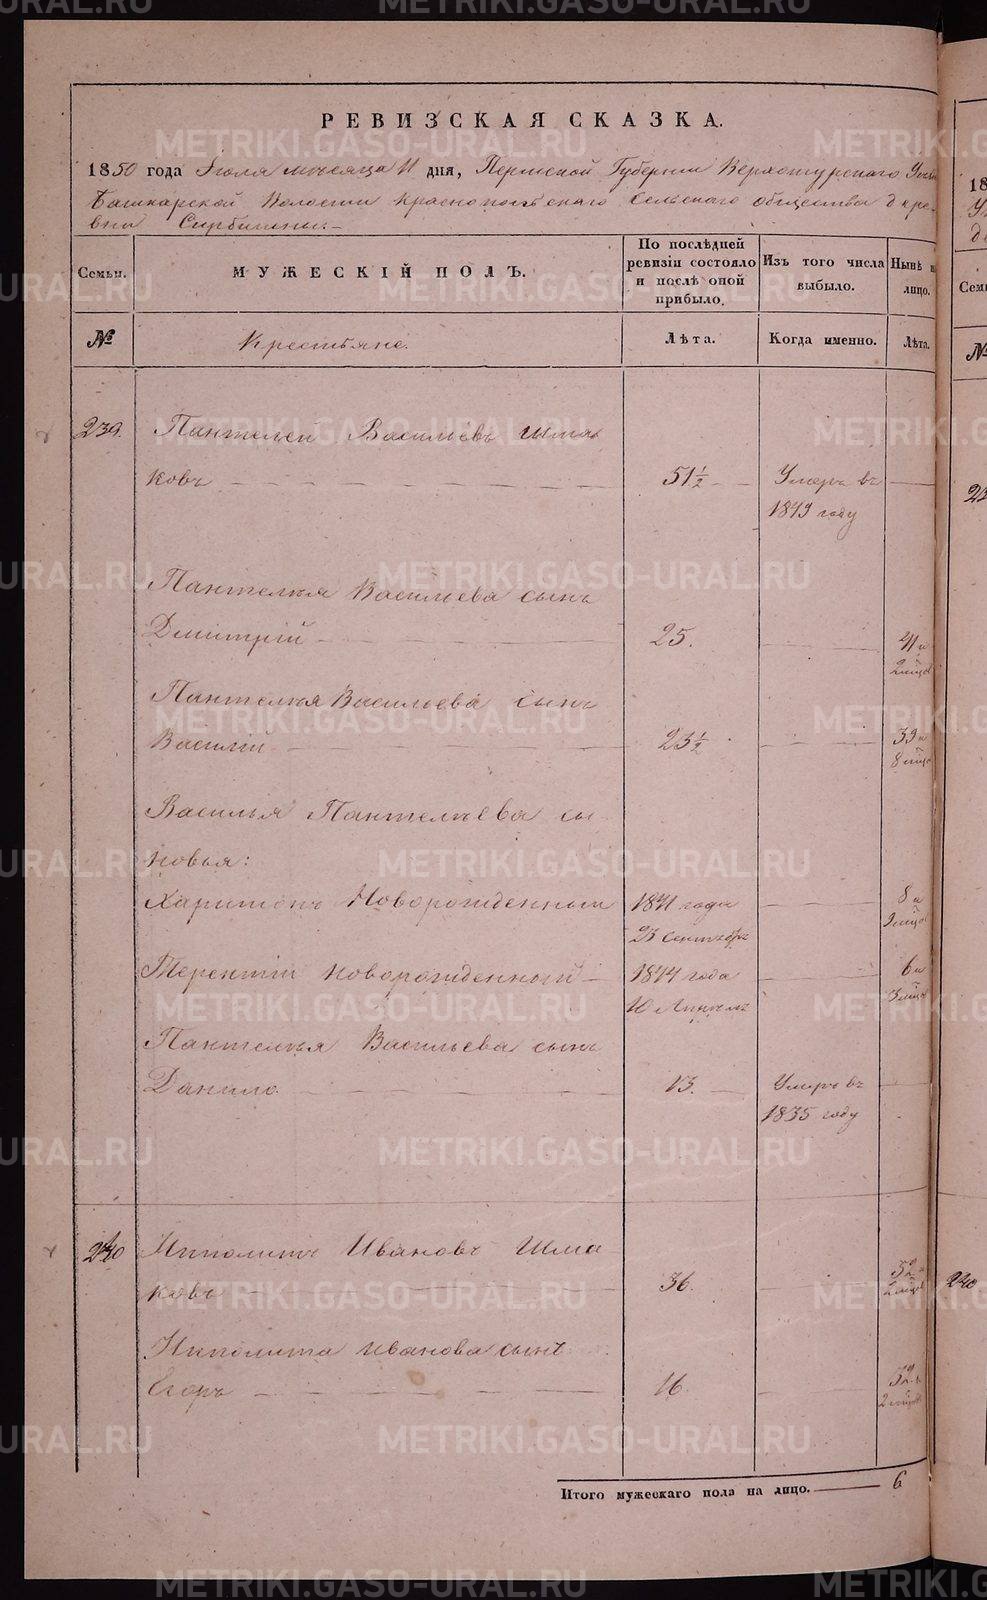 METRIKI.GASO-URAL.RU
РЕВИЗСКАЯ СКАЗКА.
1850 года Июля месяца 11 дня, Пермской Губернии Верхотурскаго
Башкарской Волости Краснопольскаго Сельскаго общества дере-
вни
Семьи. МУЖЕСКІЙ ПОЛЪ. По послѣдней ревизіи состояло и послѣ оной прибыло. Изъ того числа выбыло. Нынѣ н лицо.
№ Крестьяне. Лѣта. Когда именно. Лѣта.
239. Пантелей Васильевъ Шма
ковъ 51½ Умеръ въ
1849 году
Пантелѣя Васильева сынъ
Дмитрій 25. 41 и
2 мѣсяц
Пантелѣя Васильева сынъ
Василій 23½ 39 и
8 мѣсц
Василья Пантелѣева сы-
новья:
Харитонъ Новорожденный 1841 года 8 и
23 Сентябрь 9 мѣсяц
Терентій новорожденный 1844 года 6 и
10 Апрель 3 мѣсц
Пантелѣя Васильева сынъ
Данило 13. Умеръ въ
1835 году
240 Ипполитъ Ивановъ Шма
ковъ 36. 52 и
2 мѣсяц
Ипполита Иванова сынъ
Егоръ 16. 32 и
2 мѣсяц
Итого мужескаго пола на лицо. 6
18
Сем
№
240